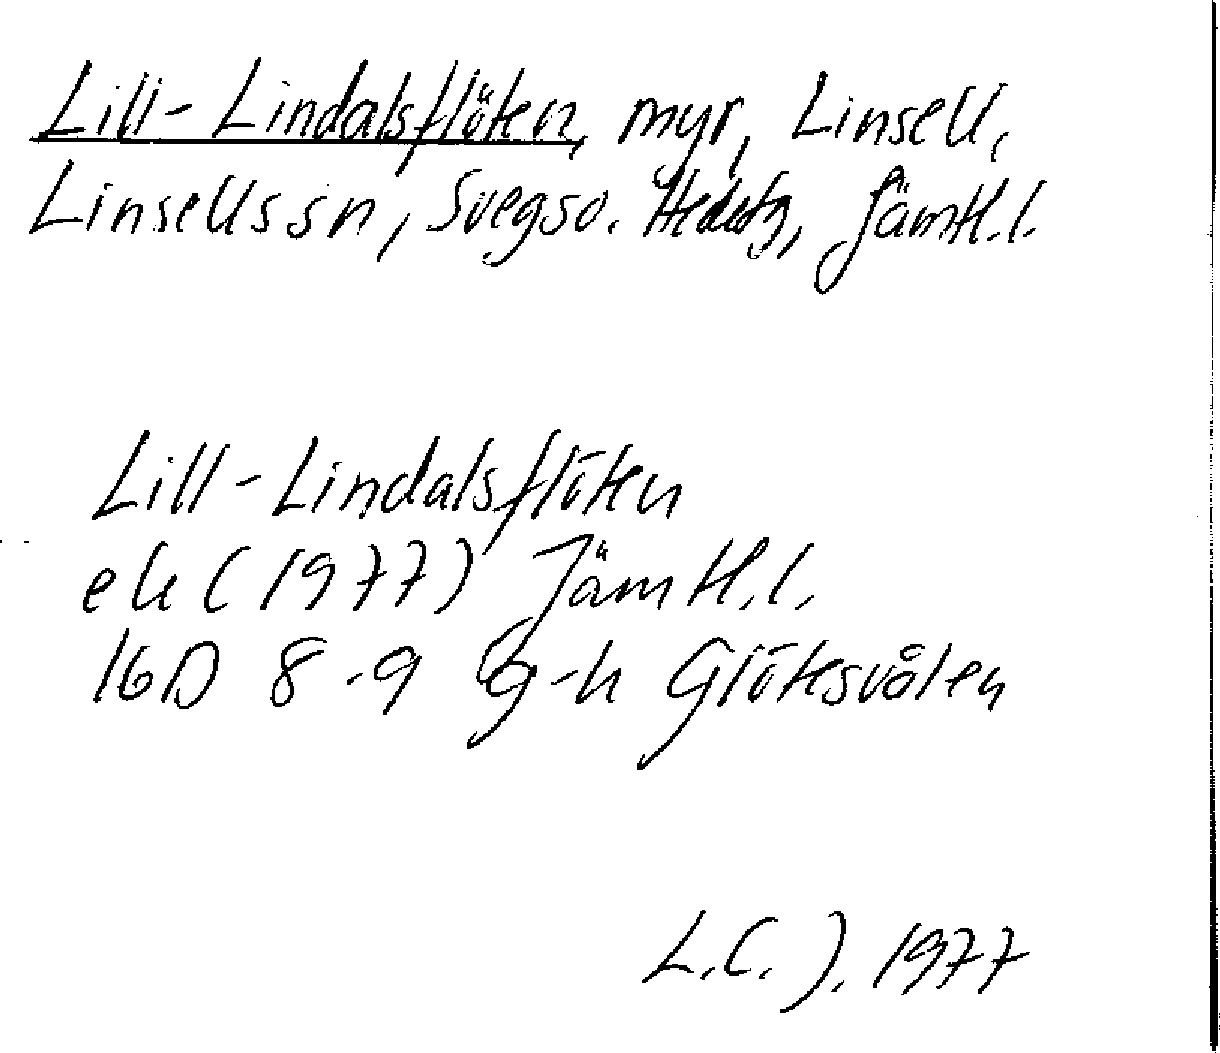 Lill-Lindalsflöten, myr, Linsell,
Linsells sn, Svegs o. Hedetg, Jämtl.l.
Lill-Lindalsflöten
ek (1977) Jämtl.l.
16D 8-9 g-h Glötesvålen
L.C.J. 1977